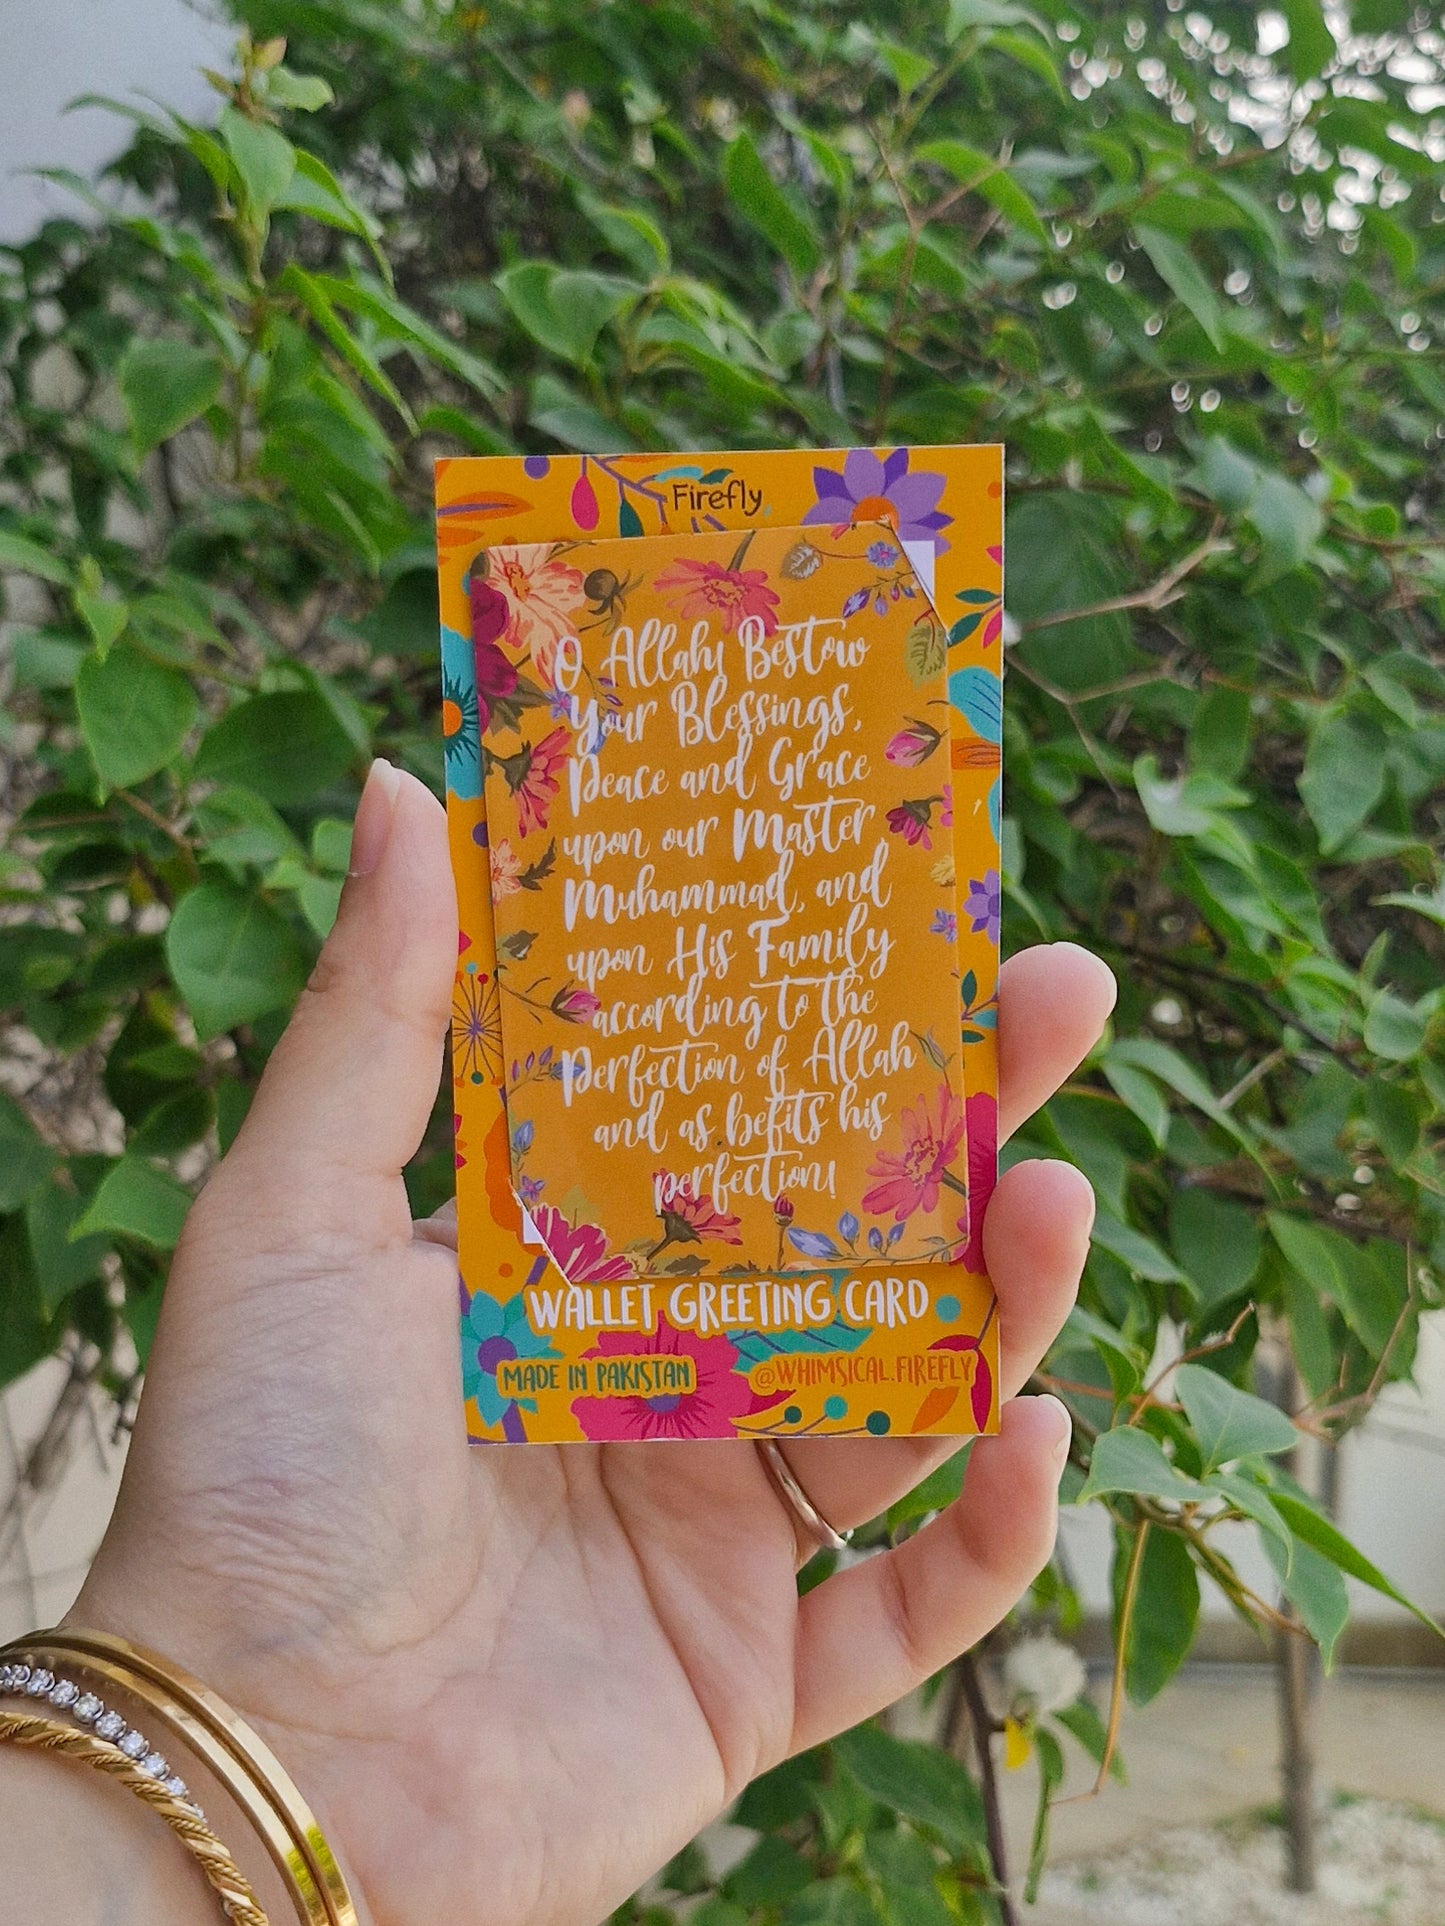 Firefly
O Allah! Bestow
Your Blessings,
Peace and Grace
upon our Master,
Muhammad, and
upon His Family
according to the
Perfection of Allah
and as befits his
perfection!
WALLET GREETING CARD
MADE IN PAKISTAN
@WHIMSICAL.FIREFLY